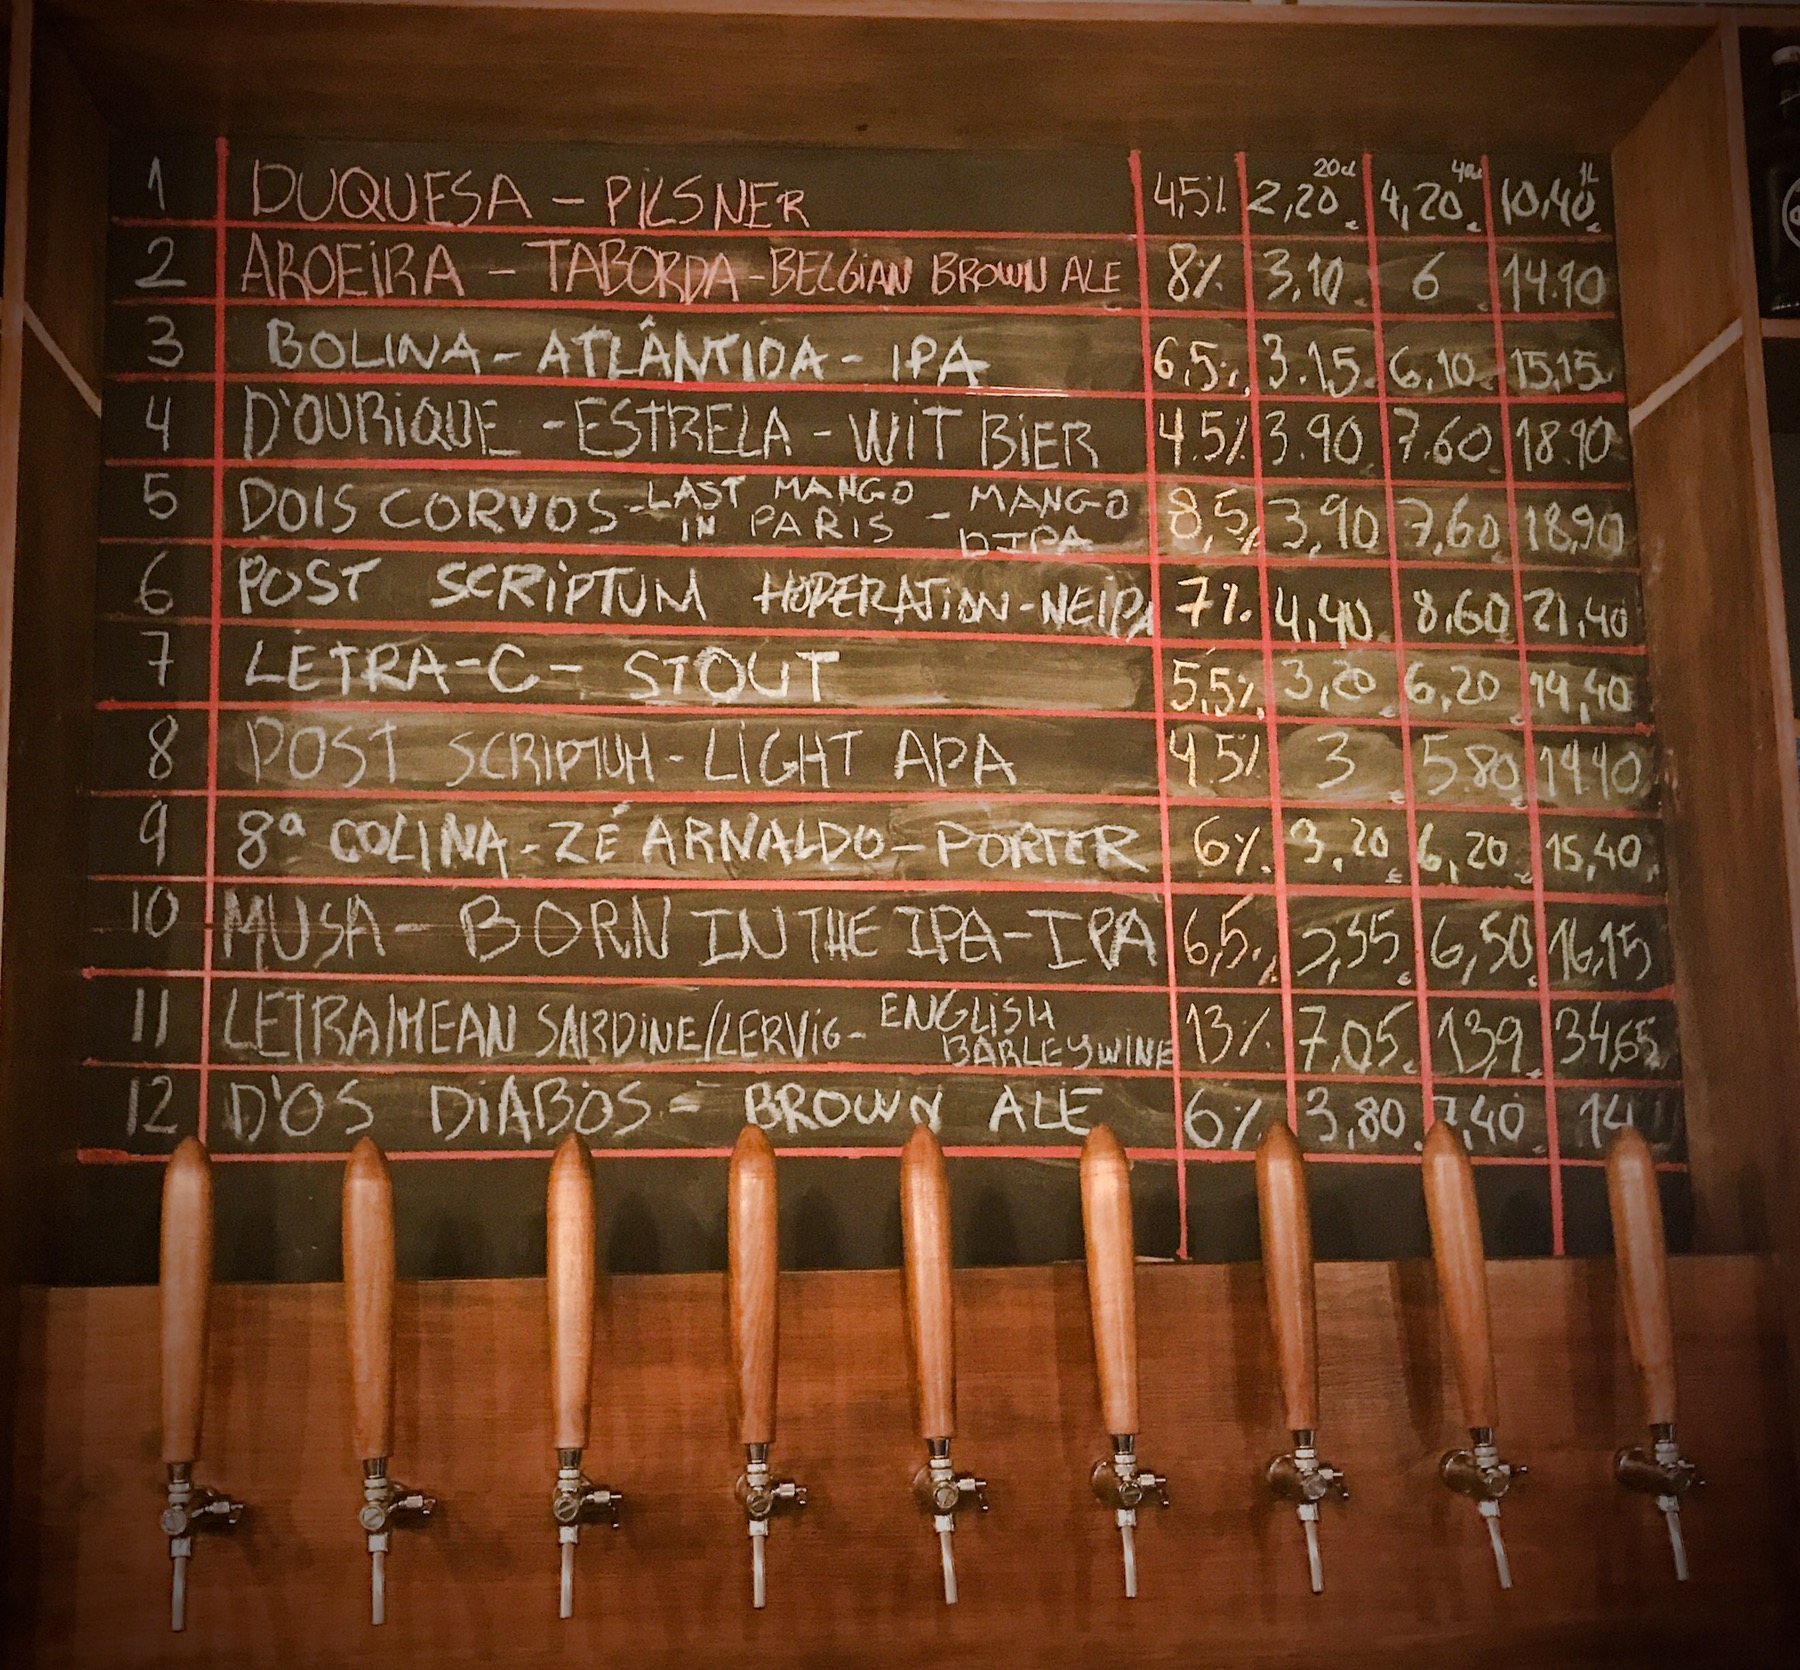 1 DUQUESA - PILSNER 4,5% 2,20€ 20cl 4,20€ 40cl 10,40€ 1L
2 AROEIRA - TABORDA - BELGIAN BROWN ALE 8% 3,10 6 14.90
3 BOLINA - ATLÂNTIDA - IPA 6,5% 3.15 6,10 15,15
4 D'OURIQUE - ESTRELA - WIT BIER 4.5% 3.90 7.60 18.90
5 DOIS CORVOS - LAST MANGO IN PARIS - MANGO DIPA 8,5% 3,90 7,60 18,90
6 POST SCRIPTUM HOPERATION - NEIPA 7% 4,40 8,60 21,40
7 LETRA - C - STOUT 5,5% 3,20 6,20€ 14,40
8 POST SCRIPTUM - LIGHT APA 4.5% 3€ 5.80€ 14.40
9 8ª COLINA - ZÉ ARNALDO - PORTER 6% 3,20€ 6,20€ 15,40
10 MUSA - BORN IN THE IPA - IPA 6,5% 3,35€ 6,50€ 16,15
11 LETRA/MEAN SARDINE/LERVIG - ENGLISH BARLEYWINE 13% 7,05€ 13,9€ 34,65
12 D'OS DIABOS - BROWN ALE 6% 3,80 7,40 14